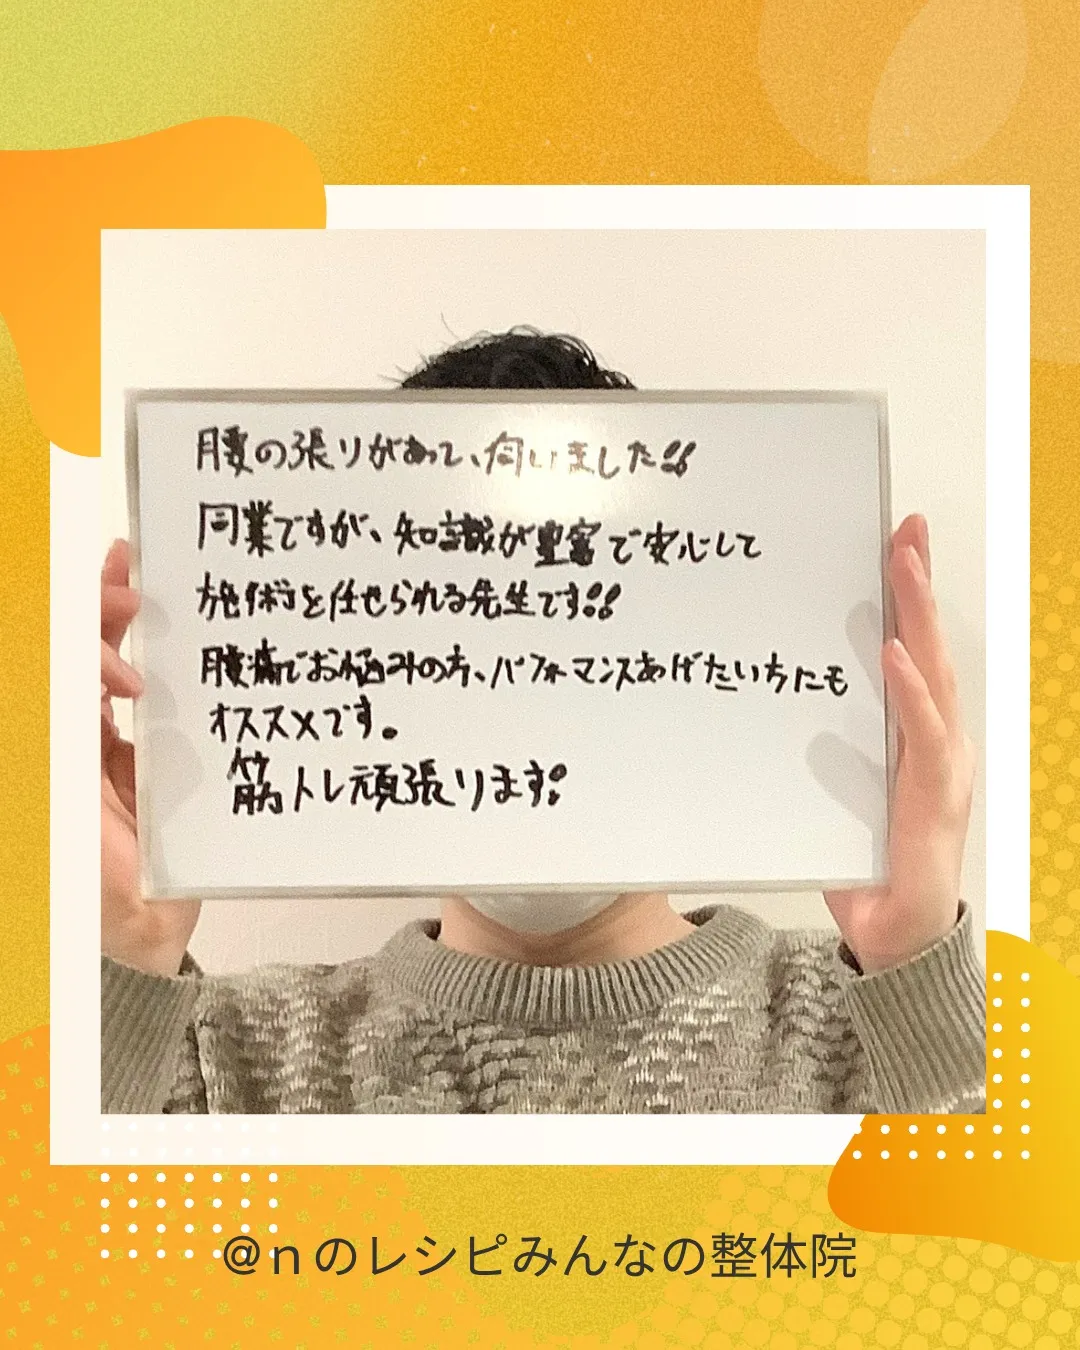 腰の張りがあって、伺いました!!
同業ですが、知識が豊富で安心して
施術を任せられる先生です!!
腰痛でお悩みの方、パフォーマンスあげたい方にも
オススメです。
筋トレ頑張ります!
@nのレシピみんなの整体院